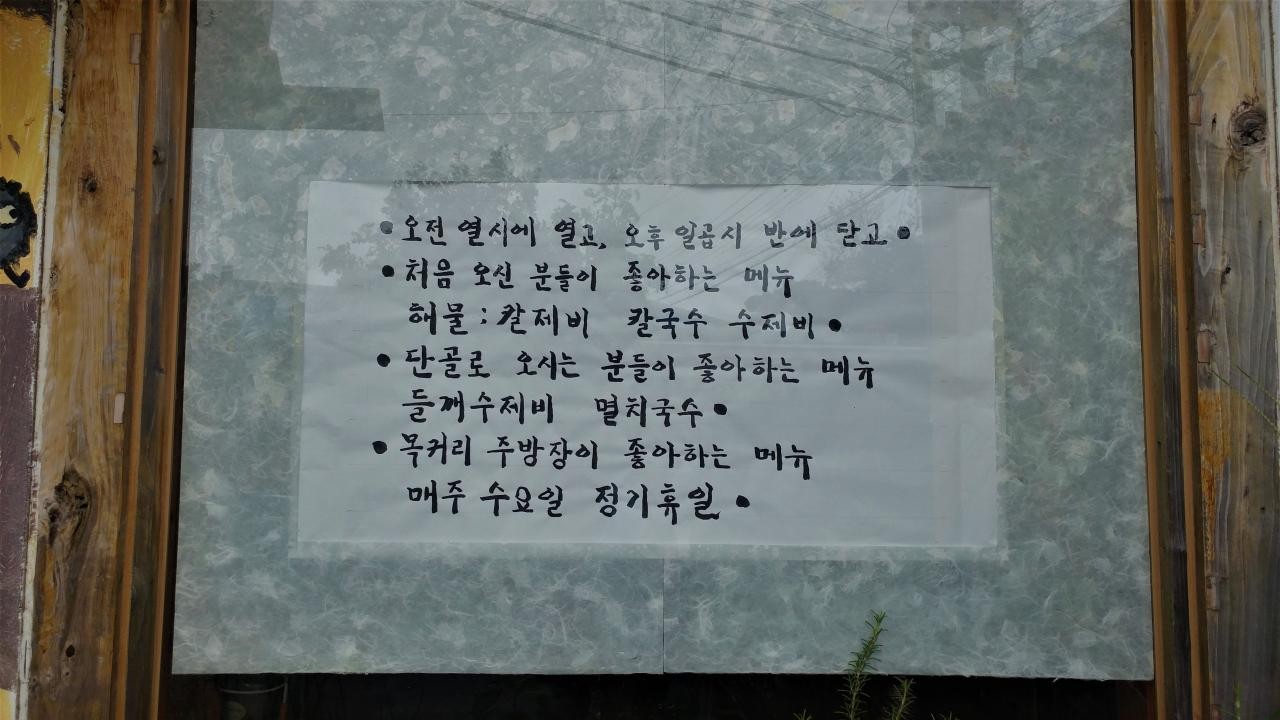 • 오전 열시에 열고, 오후 일곱시 반에 닫고 •
• 처음 오신 분들이 좋아하는 메뉴
해물 : 칼제비 칼국수 수제비 •
• 단골로 오시는 분들이 좋아하는 메뉴
들깨수제비 멸치국수 •
• 목커리 주방장이 좋아하는 메뉴
매주 수요일 정기휴일 •